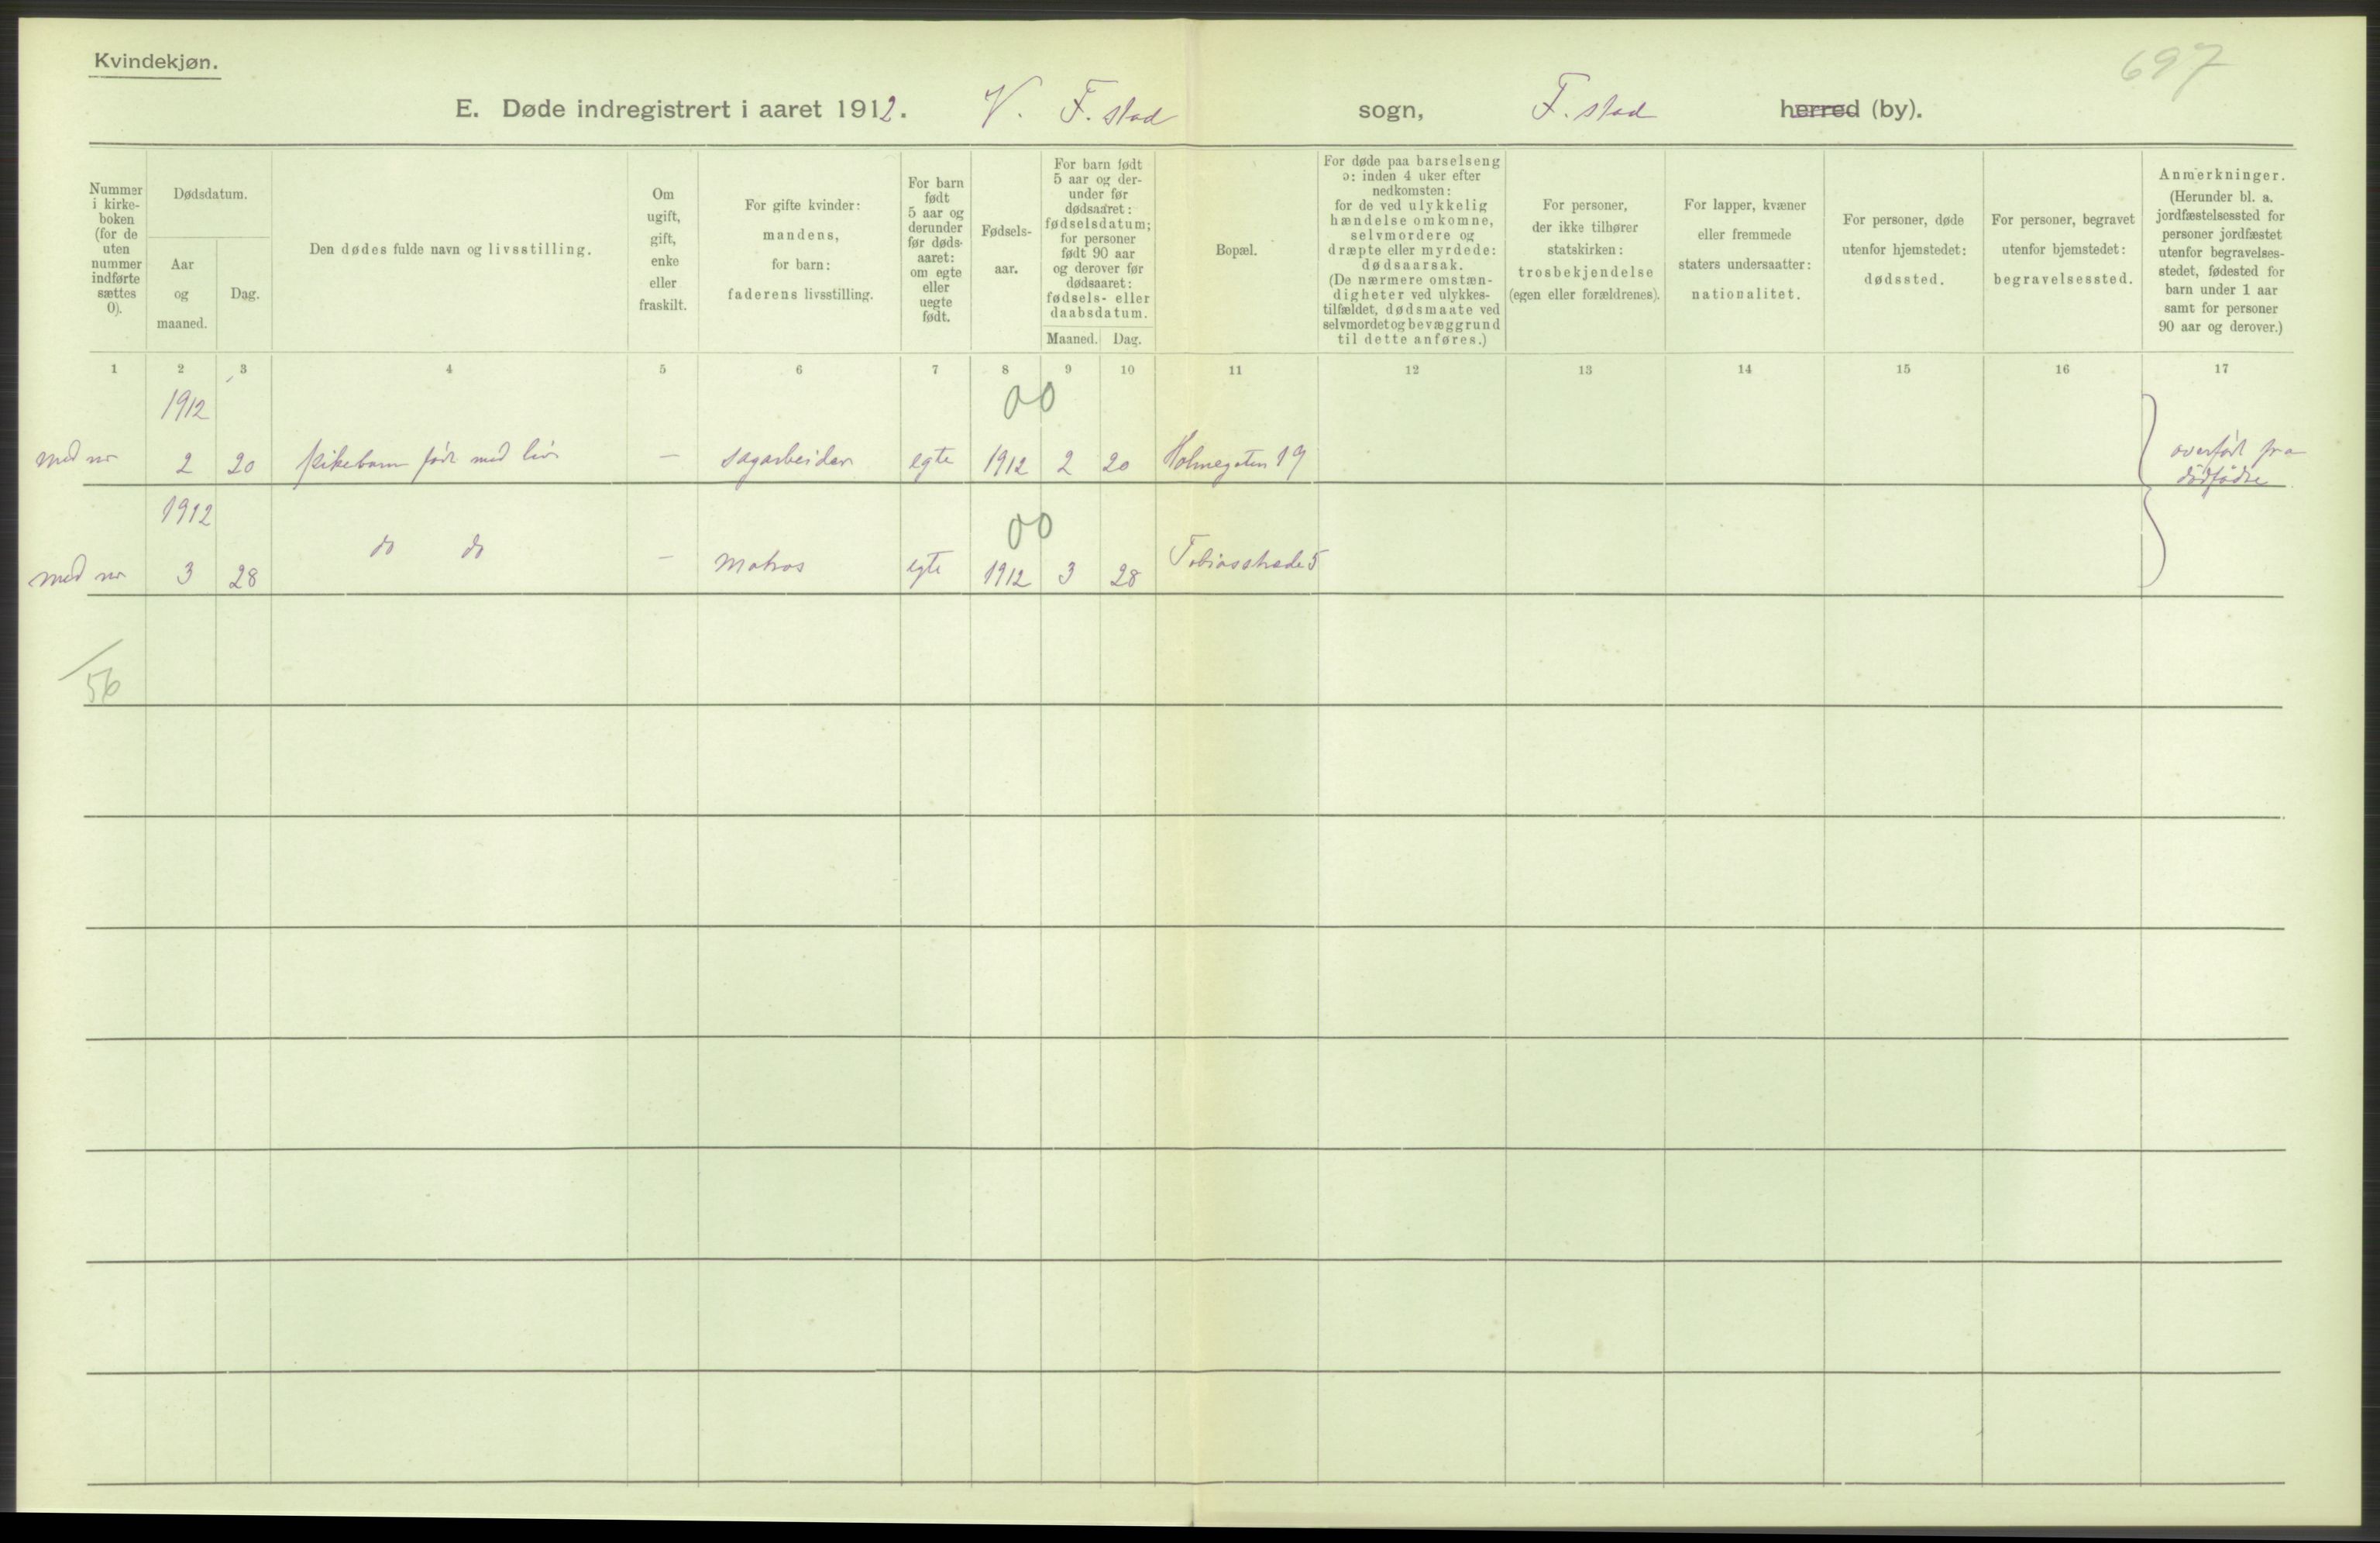 Kvindekjøn.
697
E. Døde indregistrert i aaret 1912. V. F.stad sogn, F.stad herred (by).
Nummer
i kirke-
boken
(for de
uten
nummer
indførte
sættes
0).
Dødsdatum.
Aar
og
maaned.
Dag.
Den dødes fulde navn og livsstilling.
Om
ugift,
gift,
enke
eller
fraskilt.
For gifte kvinder:
mandens,
for barn:
faderens livsstilling.
For barn
født
5 aar og
derunder
før døds-
aaret:
om egte
eller
uegte
født.
Fødsels-
aar.
For barn født
5 aar og der-
under før
dødsaaret:
fødselsdatum;
for personer
født 90 aar
og derover før
dødsaaret:
fødsels- eller
daabsdatum.
Maaned. Dag.
Bopæl.
For døde paa barselseng
ɔ: inden 4 uker efter
nedkomsten:
for de ved ulykkelig
hændelse omkomne,
selvmordere og
dræpte eller myrdede:
dødsaarsak.
(De nærmere omstæn-
digheter ved ulykkes-
tilfældet, dødsmaate ved
selvmordet og bevæggrund
til dette anføres.)
For personer,
der ikke tilhører
statskirken:
trosbekjendelse
(egen eller forældrenes).
For lapper, kvæner
eller fremmede
staters undersaatter:
nationalitet.
For personer, døde
utenfor hjemstedet:
dødssted.
For personer, begravet
utenfor hjemstedet:
begravelsessted.
Anmerkninger.
(Herunder bl. a.
jordfæstelsessted for
personer jordfæstet
utenfor begravelses-
stedet, fødested for
barn under 1 aar
samt for personer
90 aar og derover.)
1 2 3 4 5 6 7 8 9 10 11 12 13 14 15 16 17
1912 00
med nr 2 20 pikebarn født med liv — sagarbeider egte 1912 2 20 Holmegaten 19 overført fra
dødfødte
1912 00
med nr 3 28 do do — Matros egte 1912 3 28 Tobiasstrade 5
56